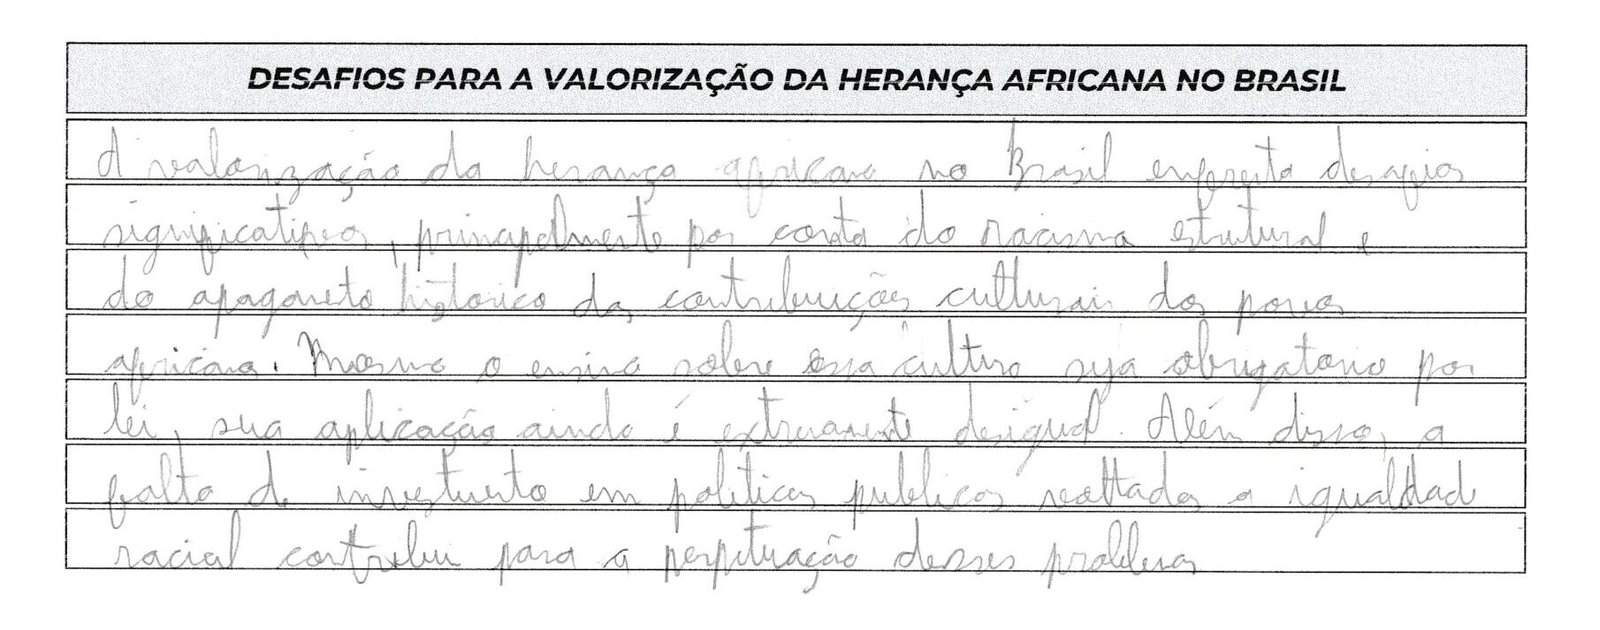 DESAFIOS PARA A VALORIZAÇÃO DA HERANÇA AFRICANA NO BRASIL
A valorização da herança africana no Brasil enfrenta desafios
significativos, principalmente por conta do racismo estrutural e
do apagamento histórico das contribuições culturais dos povos
africanos. Mesmo o ensino sobre essa cultura seja obrigatório por
lei, sua aplicação ainda é extremamente desigual. Além disso, a
falta de investimento em políticas publicas voltadas a igualdade
racial contribui para a perpetuação desses problemas